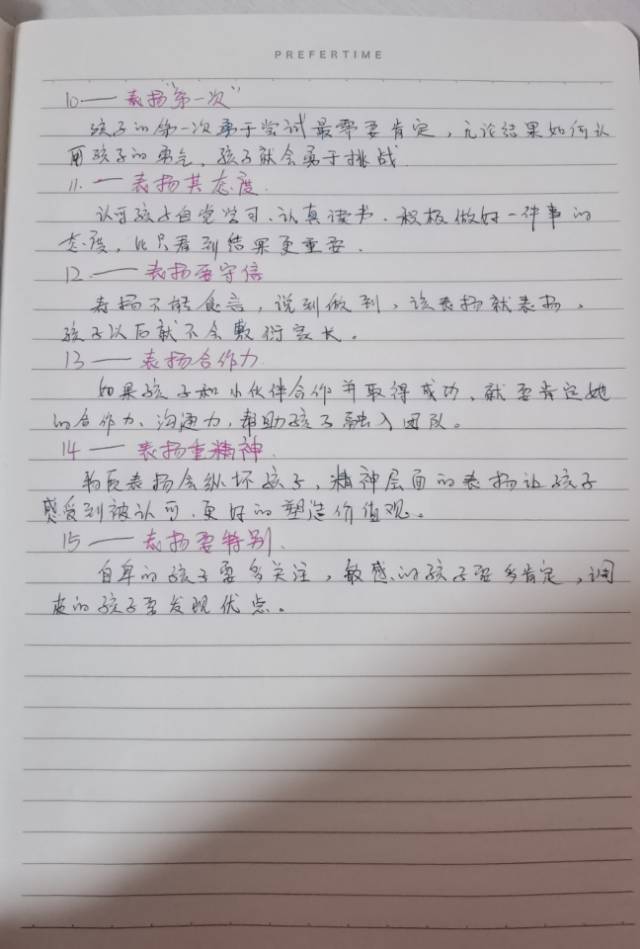 PREFERTIME
10—— 表扬"第一次"
孩子的第一次勇于尝试最需要肯定，无论结果如何认
可孩子的勇气，孩子就会勇于挑战
11.— 表扬其态度.
认可孩子自觉学习、认真读书、积极做好一件事的
态度，比只看到结果更重要.
12.—— 表扬要守信
表扬不能食言，说到做到，该表扬就表扬，
孩子以后就不会敷衍家长。
13—— 表扬合作力
如果孩子和小伙伴合作并取得成功，就要肯定她
的合作力、沟通力，帮助孩子融入团队。
14—— 表扬重精神
物质表扬会纵坏孩子，精神层面的表扬让孩子
感受到被认可、更好的塑造价值观。
15—— 表扬要特别.
自卑的孩子要多关注，敏感的孩子要多肯定，调
皮的孩子要发现优点。